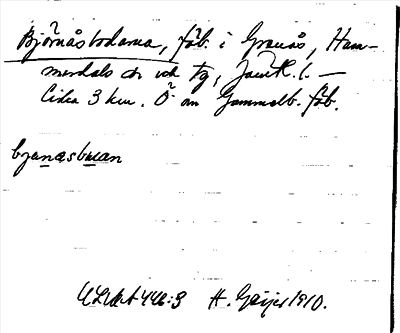 Björnåsbodarna, fäb. i Granås, Ham-
merdals sn och tg, Jämtl. l. —
Cirka 3 km. Ö om Gammelb. fäb.
bjɷnasbuan
ULMA 446:3 H. Geijer 1910.